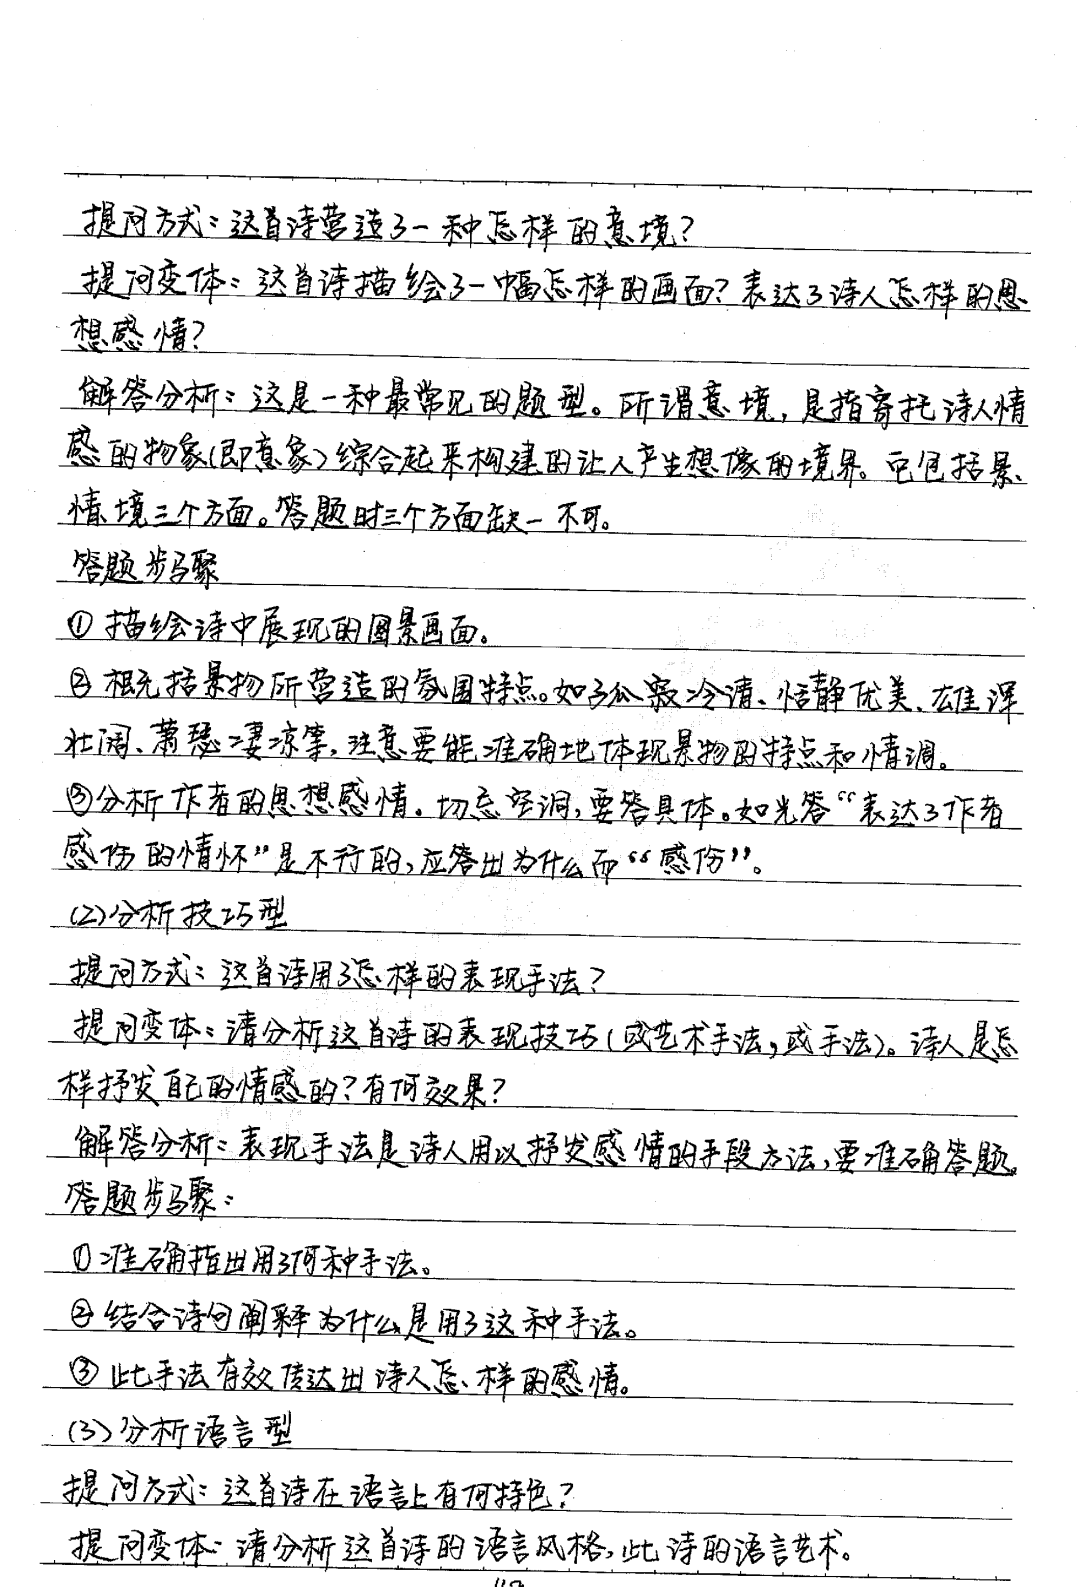 提问方式：这首诗营造了一种怎样的意境？
提问变体：这首诗描绘了一幅怎样的画面？表达了诗人怎样的思
想感情？
解答分析：这是一种最常见的题型。所谓意境，是指寄托诗人情
感的物象（即意象）综合起来构建的让人产生想像的境界。它包括景、
情、境三个方面。答题时三个方面缺一不可。
答题步骤
①描绘诗中展现的图景画面。
②概括景物所营造的氛围特点。如孤寂冷清、恬静优美、雄浑
壮阔、萧瑟凄凉等，注意要能准确地体现景物的特点和情调。
③分析作者的思想感情。切忌空洞，要答具体。如光答“表达了作者
感伤的情怀”是不行的，应答出为什么而“感伤”。
(2)分析技巧型
提问方式：这首诗用了怎样的表现手法？
提问变体：请分析这首诗的表现技巧（或艺术手法，或手法）。诗人是怎
样抒发自己的情感的？有何效果？
解答分析：表现手法是诗人用以抒发感情的手段方法，要准确答题。
答题步骤：
①准确指出用了何种手法。
②结合诗句阐释为什么是用了这种手法。
③此手法有效传达出诗人怎样的感情。
(3)分析语言型
提问方式：这首诗在语言上有何特色？
提问变体：请分析这首诗的语言风格，此诗的语言艺术。